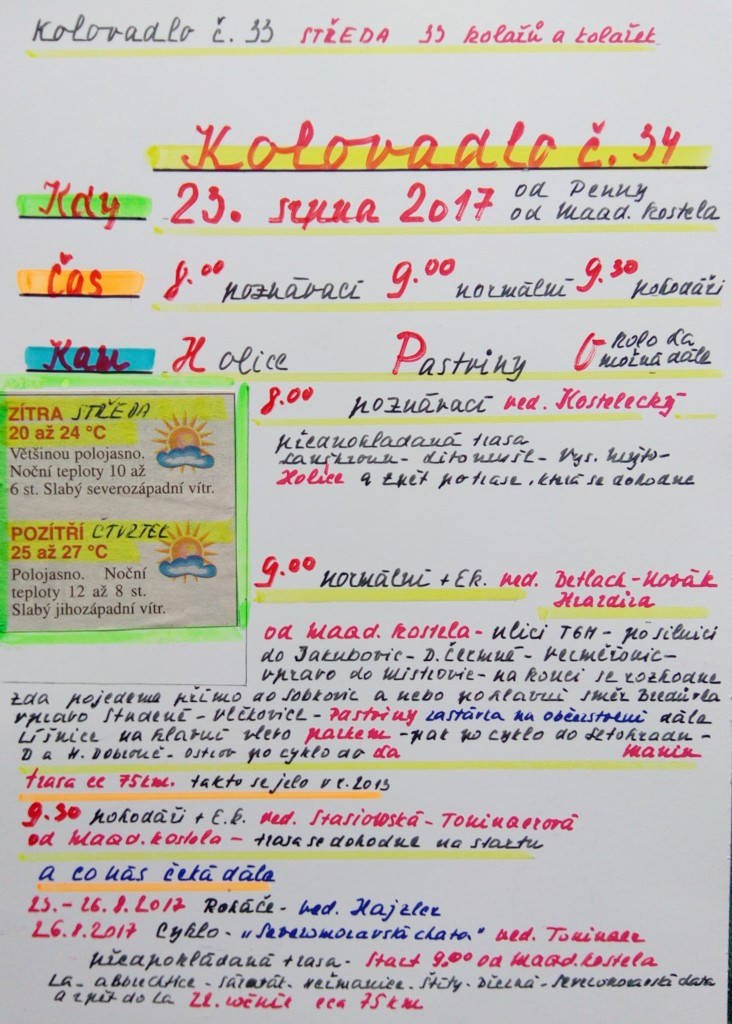 Kolovadlo č. 33 STŘEDA 33 kolařů a kolařek
Kolovadlo č. 34
Kdy 23. srpna 2017 od Penny
od Maad. kostela
Čas 8.00 poznávací 9.00 normální 9.30 pohodáři
Kam Holice Pastviny O kolo La
možná dále
ZÍTRA STŘEDA
20 až 24 °C
Většinou polojasno.
Noční teploty 10 až
6 st. Slabý severozápadní vítr.
POZÍTŘÍ ČTVRTEK
25 až 27 °C
Polojasno. Noční
teploty 12 až 8 st.
Slabý jihozápadní vítr.
8.00 poznávací ved. Kostelecký
předpokládaná trasa
Lanškroun - Litomyšl - Vys. Mýto -
Holice a zpět po trase, která se dohodne
9.00 normální + Ek. ved. Detlach - Novák
Hrazdira
od Maad. kostela - ulicí TGM - po silnici
do Jakubovic - D. Čermné - Verměřovic -
vpravo do Mistrovic - na konci se rozhodne
zda pojedeme přímo do Sobkovic a nebo po hlavní směr
vpravo Studené - Vlčkovice - Pastviny zastávka na občerstvení dále
Lišnice na hlavní vlevo - pak po cyklo do Letohradu -
D a H. Dobrouč - Ostrov po cyklo do La
trasa cc 75 km. takto se jelo v r. 2013
9.30 pohodáři + E.k. ved. Stasiowská - Tominaerová
od Maad. kostela - trasa se dohodne na startu
a co nás čeká dále
23. - 26.8.2017 Roháče - ved. Hajzler
26.8.2017 Cyklo - „Severomoravská chata" ved. Tominaer
předpokládaná trasa - start 9.00 od Maad. kostela
La - - - - Štíty - - Severomoravská chata
a zpět do La 22. ročník cca 75 km